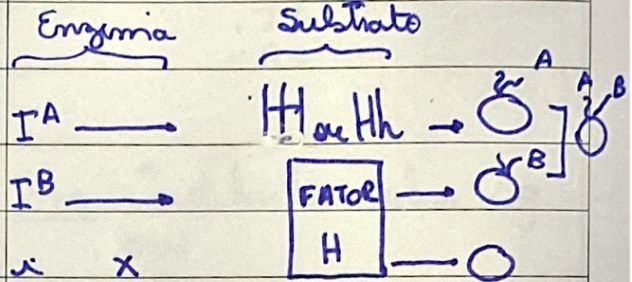 Enzima Substrato
I^A HH ou Hh A A B
I^B FATOR B
i x H